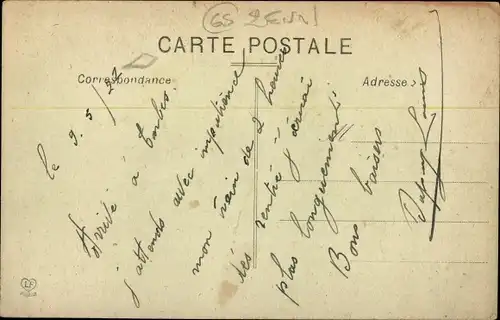 CARTE POSTALE
Correspondance
Adresse
le 9/5/22
Arrivé à
j'attends avec impatience
mon train de 2 heures
dès rentré j'écrirai
plus longuement
Bons baisers